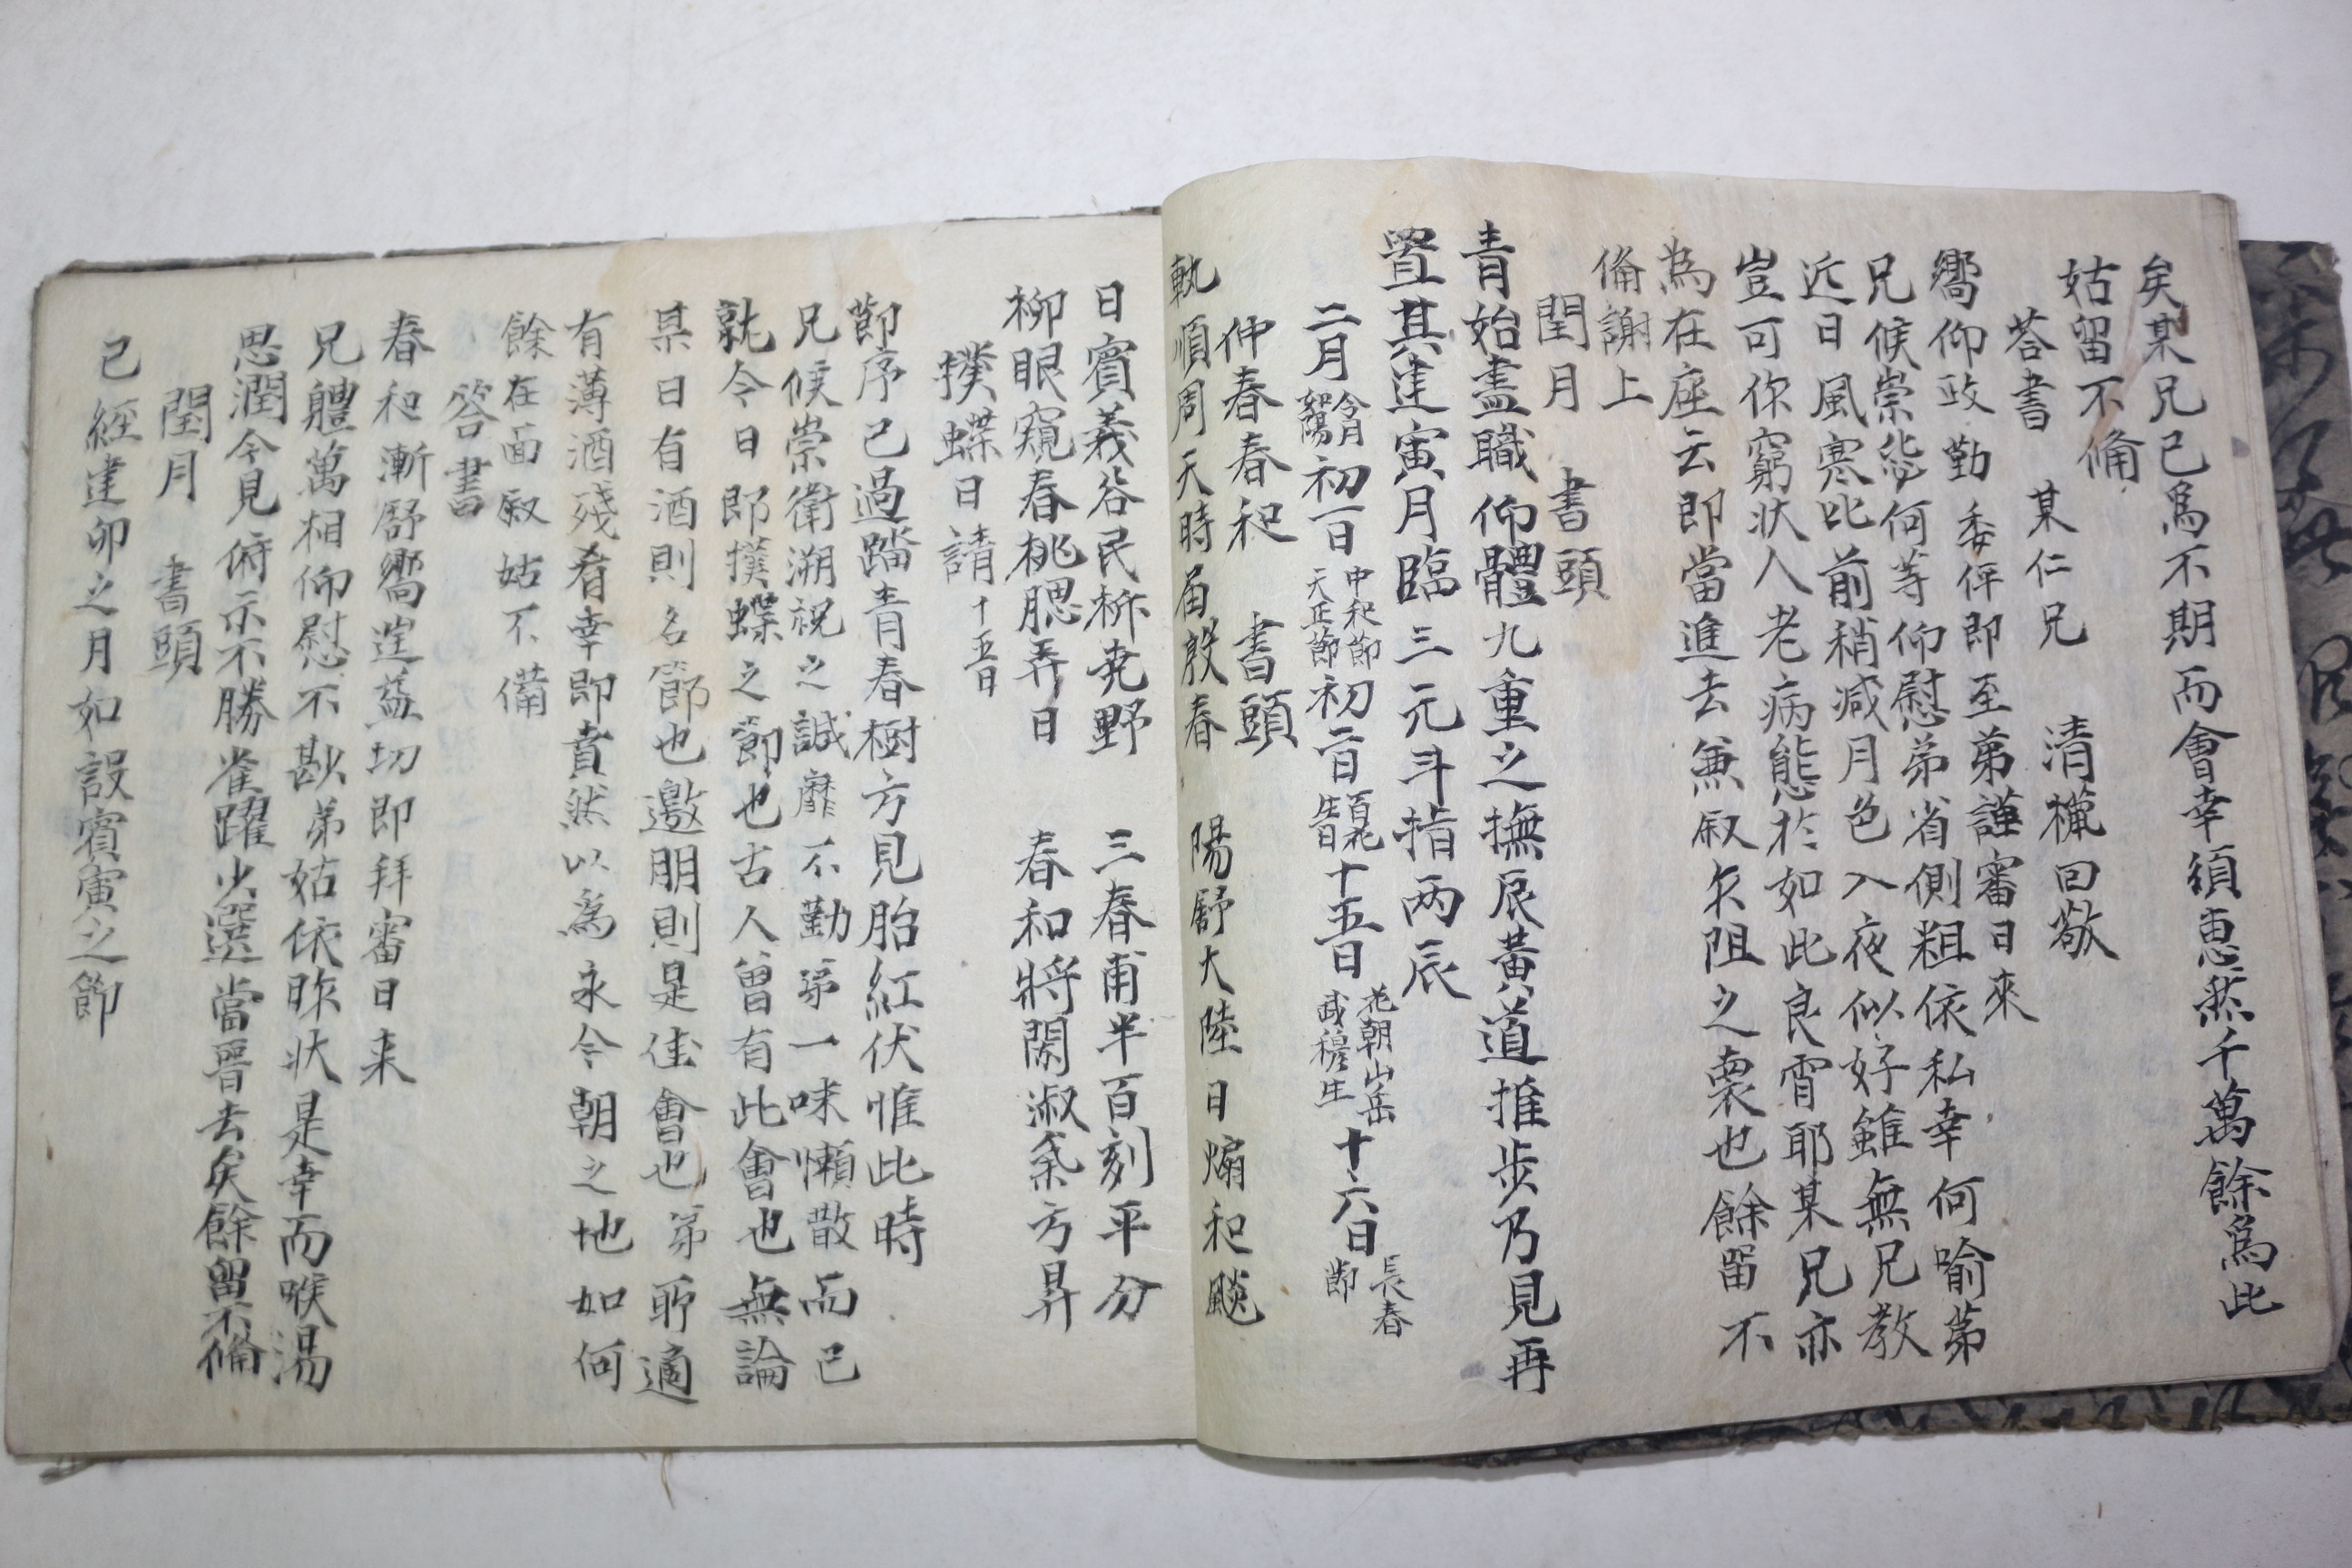 矣某兄已爲不期而會幸須惠然千萬餘爲此
姑留不俻
答書 某仁兄 清櫂回敬
嚮仰政勤委伻即至苐謹審日來
兄候崇毖何等仰慰苐省側粗依私幸何喻苐
近日風寒比前稍减月色入夜似好雖無兄教
豈可你窮状人老病態於如此良宵耶某兄亦
為在座云即當進去兼叙久阻之裏也餘留不
俻謝上
閏月 書頭
青始盡職仰體九重之撫辰黃道推步乃見再
置其建寅月臨三元斗指两辰
二月 令月 如陽 初一日 中和節 天正節 初二日 百花生日 十五日 花朝山岳 或穆生 十六日 長春節
仲春春和 書頭
執順周天時届殷春 陽舒大陸日煽和颷
日賓義谷民柝尭野 三春甫半百刻平分
柳眼窺春桃腮弄日 春和將閙淑氣方昇
撲蝶日請 十五日
節序已過踏青春樹方見胎紅伏惟此時
兄候崇衛溯祝之誠靡不勤苐一味懶散而已
就今日即撲蝶之節也古人曾有此會也無論
某日有酒則名節也邀朋則是佳會也苐聊適
有薄酒殘肴幸即賁然以爲永今朝之地如何
餘在面叙姑不備
答書
春和漸舒嚮逬益切即拜審日来
兄軆萬相仰慰不尠苐姑依昨状是幸而喉湯
思潤今見俯示不勝雀躍少選當晋去矣餘畱不俻
閏月 書頭
已經建卯之月如設賓寅之節